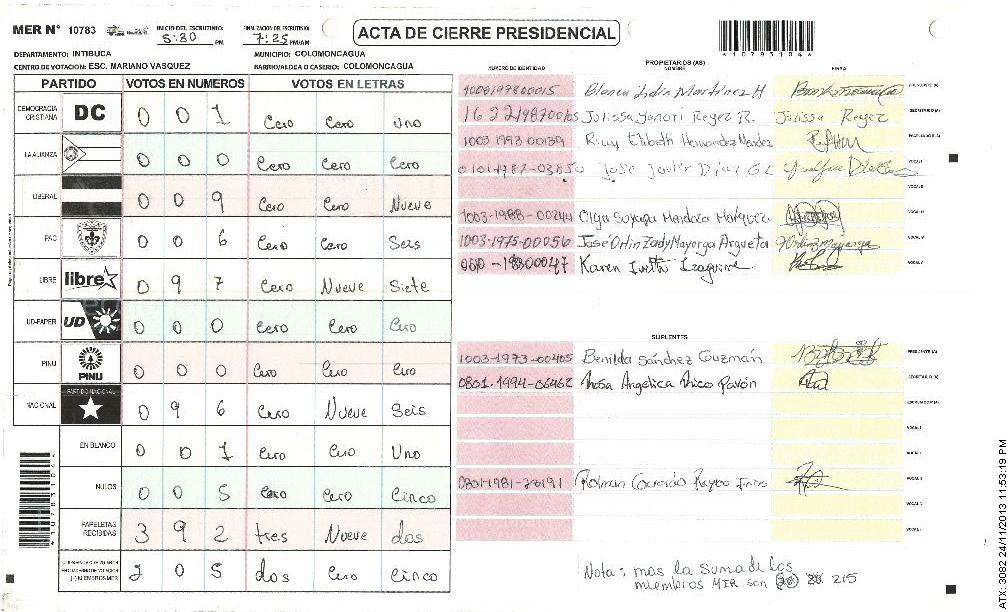 MER Nº 10783
INICIO DEL ESCRUTINIO: 5:30 PM
FINALIZACION DEL ESCRUTINIO: 7:25 PM/AM
ACTA DE CIERRE PRESIDENCIAL
4107831044
DEPARTAMENTO: INTIBUCA
MUNICIPIO: COLOMONCAGUA
CENTRO DE VOTACION: ESC. MARIANO VASQUEZ
BARRIO/ALDEA O CASERIO: COLOMONCAGUA
PARTIDO VOTOS EN NUMEROS VOTOS EN LETRAS
DEMOCRACIA CRISTIANA DC 0 0 1 Cero Cero Uno
LA ALIANZA 0 0 0 Cero Cero Cero
LIBERAL 0 0 9 Cero Cero Nueve
PAC 0 0 6 Cero Cero Seis
LIBRE libre 0 9 7 Cero Nueve Siete
UD-FAPER UD 0 0 0 Cero Cero Cero
PINU PINU 0 0 0 Cero Cero Cero
NACIONAL PARTIDO NACIONAL 0 9 6 Cero Nueve Seis
EN BLANCO 0 0 1 Cero Cero Uno
NULOS 0 0 5 Cero Cero Cinco
PAPELETAS RECIBIDAS 3 9 2 tres Nueve dos
2 0 5 dos Cero Cinco
NUMERO DE IDENTIDAD
PROPIETARIOS (AS)
NOMBRE
FIRMA
Blanca Lidia Martinez H PRESIDENTE (A)
Julissa Yanori Reyez R. Julissa Reyez SECRETARIO (A)
1003 1993 00139 Elibeth Hernandez Mendez ESCRUTADOR (A)
Jose Javier Diaz VOCAL I
VOCAL II
1003-1988-00244 Olga Suyapa Mendoza Marquez VOCAL III
1003-1975-00056 José Ortin Zady Mayorga Argueta VOCAL IV
Karen Iveth Izaguirre VOCAL V
SUPLENTES
1003-1973-00405 Benilda Sánchez Guzmán PRESIDENTE (A)
0801-1994-06462 Rosa Angelica Rico Pavón SECRETARIO (A)
ESCRUTADOR (A)
VOCAL I
VOCAL II
0801-1981-28191 Rolman VOCAL III
VOCAL IV
VOCAL V
Nota: mas la Suma de los
miembros MER son 215
4107831044
ATX 3082 24/11/2013 11:53:19 PM